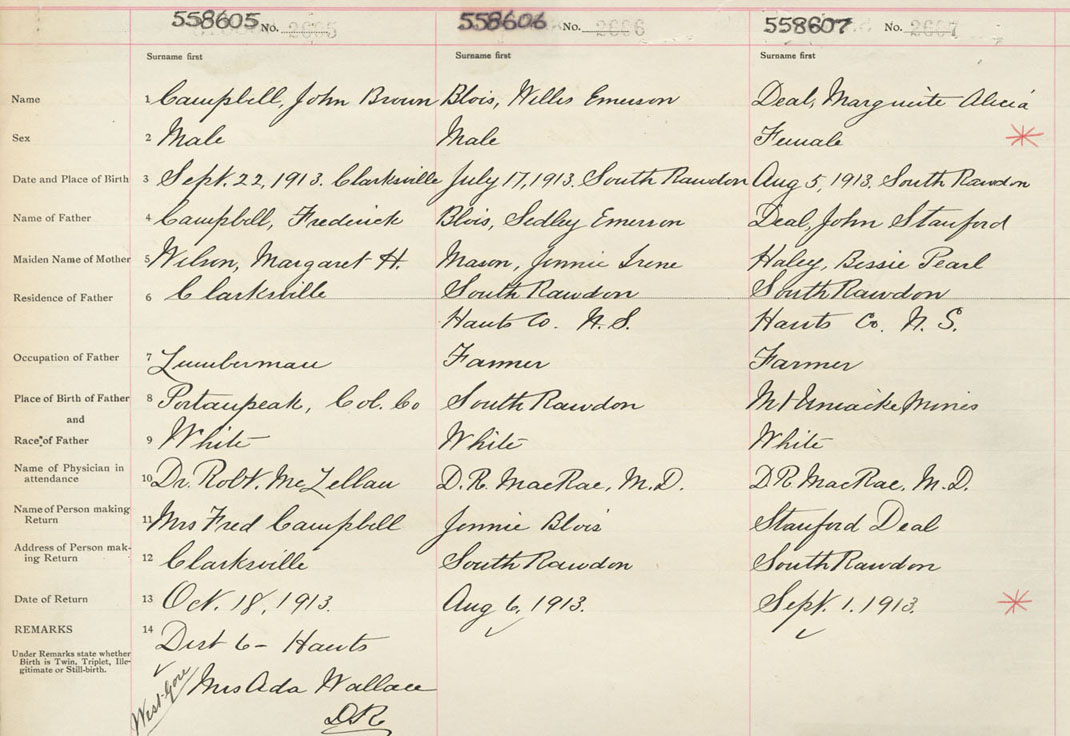 558605 No. 2605 558606 No. 2606 558607 No. 2607
Surname first Surname first Surname first
Name 1 Campbell, John Brown Blois, Willis Emerson Deal, Marguite Alicia
Sex 2 Male Male Female
Date and Place of Birth 3 Sept. 22, 1913. Clarksville July 17, 1913. South Rawdon Aug 5, 1913. South Rawdon
Name of Father 4 Campbell, Frederick Blois, Sedley Emerson Deal, John Stanford
Maiden Name of Mother 5 Wilson, Margaret H. Mason, Jennie Irene Haley, Bessie Pearl
Residence of Father 6 Clarksville South Rawdon South Rawdon
Hants Co. N.S. Hants Co. N.S.
Occupation of Father 7 Lumberman Farmer Farmer
Place of Birth of Father 8 Portaupeak, Col. Co South Rawdon Mt Uniacke Mines
and
Race of Father 9 White White White
Name of Physician in
attendance 10 Dr. Robt. McLellan D.R. MacRae, M.D. DR MacRae, M.D.
Name of Person making
Return 11 Mrs Fred Campbell Jennie Blois Stanford Deal
Address of Person mak-
ing Return 12 Clarksville South Rawdon South Rawdon
Date of Return 13 Oct. 18, 1913. Aug 6, 1913. Sept. 1. 1913.
REMARKS 14 Dist 6 - Hants
Under Remarks state whether
Birth is Twin, Triplet, Ille-
gitimate or Still-birth.
West Gore Mrs Ada Wallace
D.R.